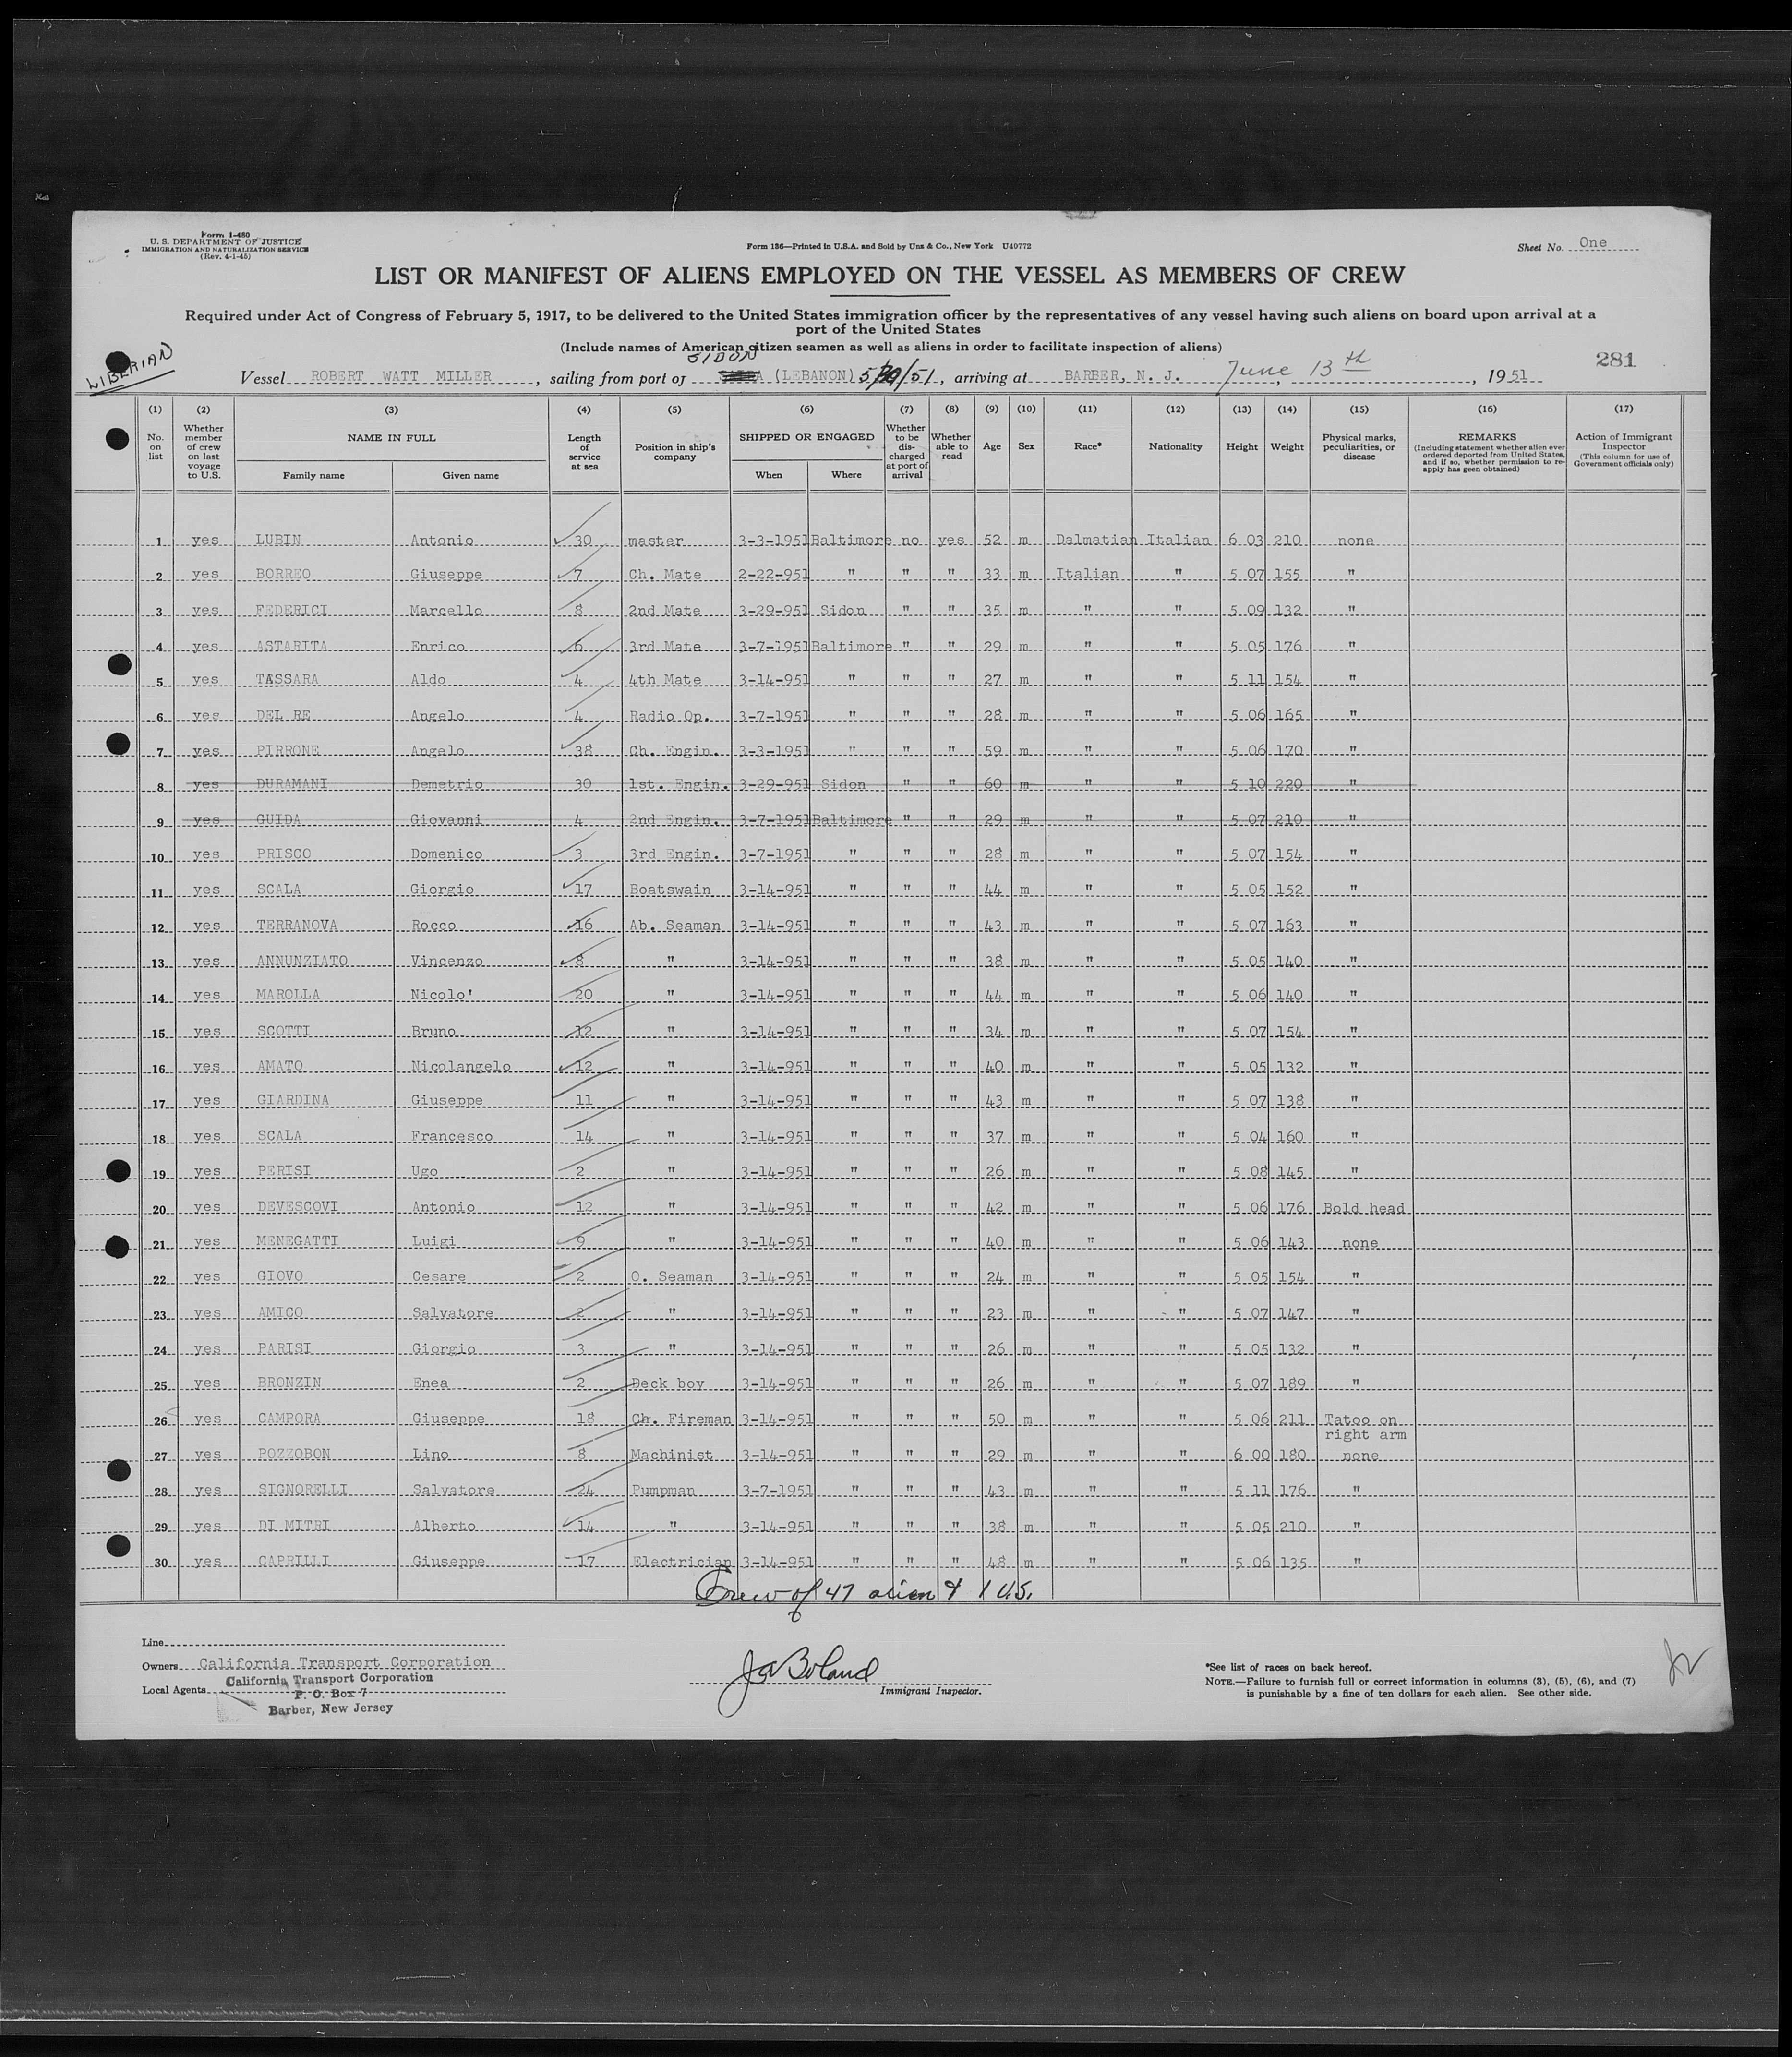 Form I-480
U. S. DEPARTMENT OF JUSTICE
IMMIGRATION AND NATURALIZATION SERVICE
(Rev. 4-1-45)
Form 136—Printed in U.S.A. and Sold by Unz & Co., New York U40772
Sheet No. One
LIST OR MANIFEST OF ALIENS EMPLOYED ON THE VESSEL AS MEMBERS OF CREW
Required under Act of Congress of February 5, 1917, to be delivered to the United States immigration officer by the representatives of any vessel having such aliens on board upon arrival at a
port of the United States
(Include names of American citizen seamen as well as aliens in order to facilitate inspection of aliens)
LIBERIAN
SIDON
281
Vessel ROBERT WATT MILLER, sailing from port of (LEBANON) /51, arriving at BARBER, N. J. June 13th, 1951
(1) (2) (3) (4) (5) (6) (7) (8) (9) (10) (11) (12) (13) (14) (15) (16) (17)
No. on list Whether member of crew on last voyage to U.S. NAME IN FULL Family name Given name Length of service at sea Position in ship's company SHIPPED OR ENGAGED When Where Whether to be discharged at port of arrival Whether able to read Age Sex Race* Nationality Height Weight Physical marks, peculiarities, or disease REMARKS (Including statement whether alien ever ordered deported from United States, and if so, whether permission to re-apply has geen obtained) Action of Immigrant Inspector (This column for use of Government officials only)
1 yes LUBIN Antonio 30 master 3-3-1951 Baltimore no yes 52 m Dalmatian Italian 6 03 210 none
2 yes BORREO Giuseppe 7 Ch. Mate 2-22-951 " " " 33 m Italian " 5 07 155 "
3 yes FEDERICI Marcello 8 2nd Mate 3-29-951 Sidon " " 35 m " " 5 09 132 "
4 yes ASTARITA Enrico 6 3rd Mate 3-7-1951 Baltimore " " 29 m " " 5 05 176 "
5 yes TASSARA Aldo 4 4th Mate 3-14-951 " " " 27 m " " 5 11 154 "
6 yes DEL RE Angelo 4 Radio Op. 3-7-1951 " " " 28 m " " 5 06 165 "
7 yes PIRRONE Angelo 38 Ch. Engin. 3-3-1951 " " " 59 m " " 5 06 170 "
8 yes DURAMANI Demetrio 30 1st. Engin. 3-29-951 Sidon " " 60 m " " 5 10 220 "
9 yes GUIDA Giovanni 4 2nd Engin. 3-7-1951 Baltimore " " 29 m " " 5 07 210 "
10 yes PRISCO Domenico 3 3rd Engin. 3-7-1951 " " " 28 m " " 5 07 154 "
11 yes SCALA Giorgio 17 Boatswain 3-14-951 " " " 44 m " " 5 05 152 "
12 yes TERRANOVA Rocco 16 Ab. Seaman 3-14-951 " " " 43 m " " 5 07 163 "
13 yes ANNUNZIATO Vincenzo 8 " 3-14-951 " " " 38 m " " 5 05 140 "
14 yes MAROLLA Nicolo' 20 " 3-14-951 " " " 44 m " " 5 06 140 "
15 yes SCOTTI Bruno 12 " 3-14-951 " " " 34 m " " 5 07 154 "
16 yes AMATO Nicolangelo 12 " 3-14-951 " " " 40 m " " 5 05 132 "
17 yes GIARDINA Giuseppe 11 " 3-14-951 " " " 43 m " " 5 07 138 "
18 yes SCALA Francesco 14 " 3-14-951 " " " 37 m " " 5 04 160 "
19 yes PERISI Ugo 2 " 3-14-951 " " " 26 m " " 5 08 145 "
20 yes DEVESCOVI Antonio 12 " 3-14-951 " " " 42 m " " 5 06 176 Bold head
21 yes MENEGATTI Luigi 9 " 3-14-951 " " " 40 m " " 5 06 143 none
22 yes GIOVO Cesare 2 O. Seaman 3-14-951 " " " 24 m " " 5 05 154 "
23 yes AMICO Salvatore 2 " 3-14-951 " " " 23 m " " 5 07 147 "
24 yes PARISI Giorgio 3 " 3-14-951 " " " 26 m " " 5 05 132 "
25 yes BRONZIN Enea 2 Deck boy 3-14-951 " " " 26 m " " 5 07 189 "
26 yes CAMPORA Giuseppe 18 Ch. Fireman 3-14-951 " " " 50 m " " 5 06 211 Tatoo on right arm
27 yes POZZOBON Lino 8 Machinist 3-14-951 " " " 29 m " " 6 00 180 none
28 yes SIGNORELLI Salvatore 24 Pumpman 3-7-1951 " " " 43 m " " 5 11 176 "
29 yes DI MITRI Alberto 14 " 3-14-951 " " " 38 m " " 5 05 210 "
30 yes CAPRILLI Giuseppe 17 Electrician 3-14-951 " " " 48 m " " 5 06 135 "
Crew of 47 alien & 1 U.S.
Line
Owners California Transport Corporation
Local Agents California Transport Corporation
P. O. Box 7
Barber, New Jersey
JA Boland
Immigrant Inspector.
*See list of races on back hereof.
NOTE.—Failure to furnish full or correct information in columns (3), (5), (6), and (7)
is punishable by a fine of ten dollars for each alien. See other side.